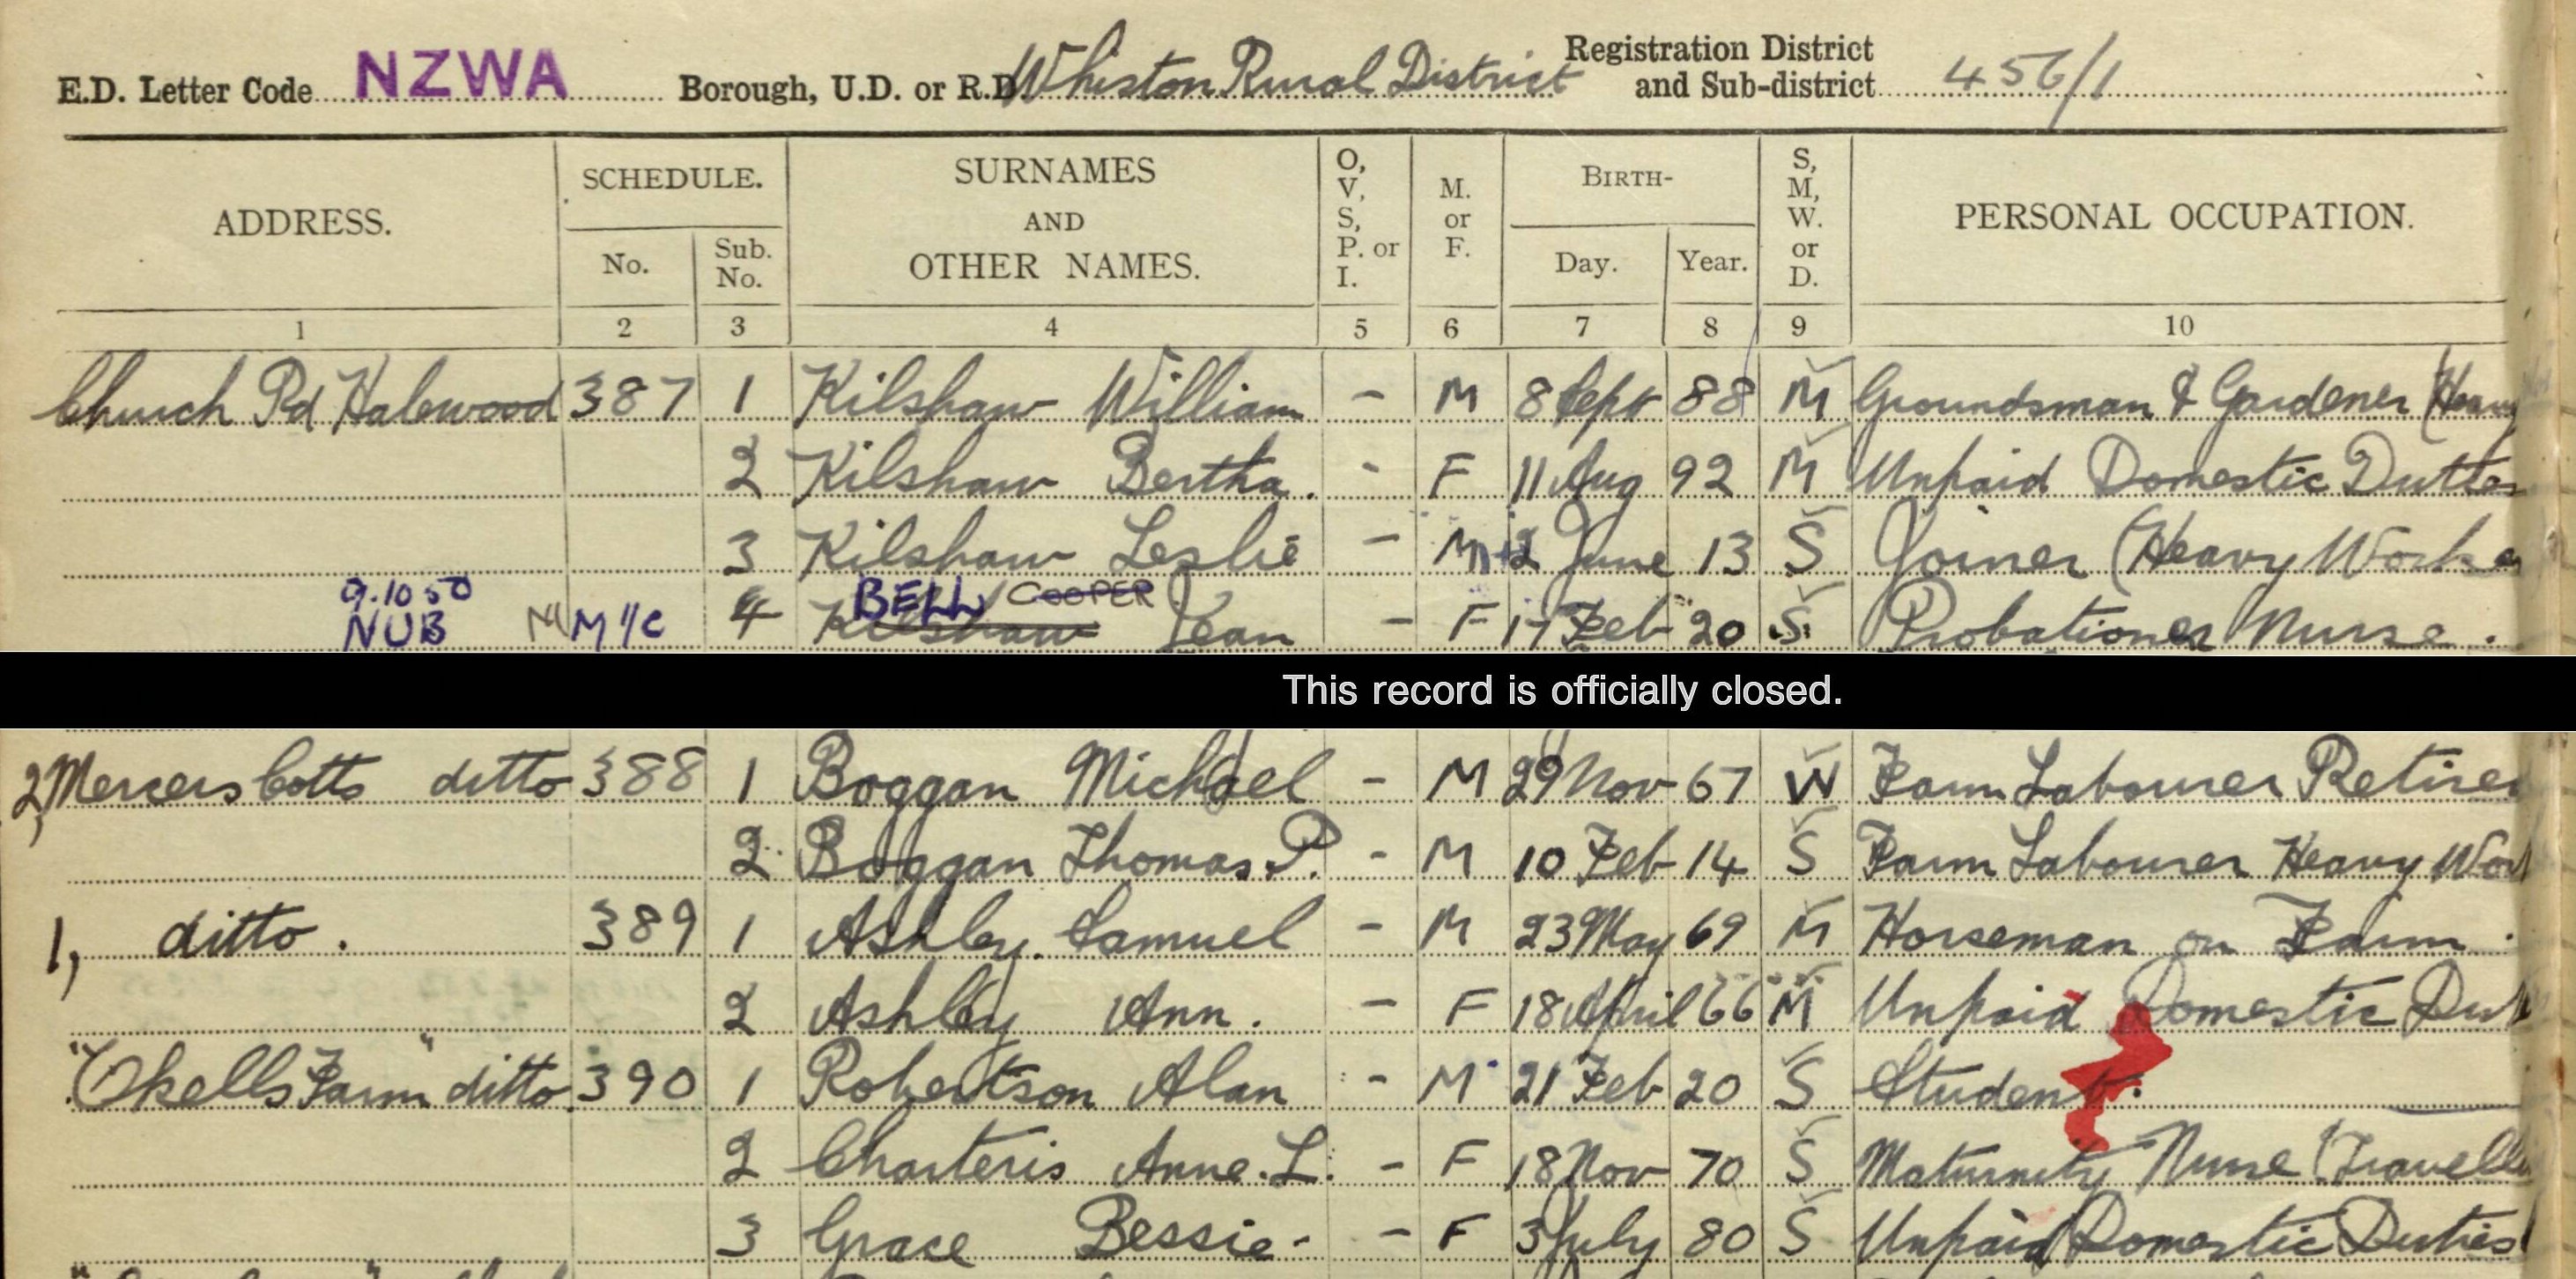 E.D. Letter Code NZWA Borough, U.D. or R.D. Whiston Rural District Registration District and Sub-district 456/1
ADDRESS. SCHEDULE. No. Sub. No. SURNAMES AND OTHER NAMES. O, V, S, P. or I. M. or F. BIRTH- Day. Year. S, M, W. or D. PERSONAL OCCUPATION.
1 2 3 4 5 6 7 8 9 10
Church Rd Halewood 387 1 Kilshaw William - M 8 Sept 88 M Groundsman & Gardener (Heavy
2 Kilshaw Bertha. - F 11 Aug 92 M Unpaid Domestic Duties
3 Kilshaw Leslie - M 12 June 13 S Joiner (Heavy Worker
9.10.50 BELL COOPER
NUB M M/C 4 Kilshaw Jean - F 17 Feb 20 S Probationer Nurse.
This record is officially closed.
2, Mercers Cotts ditto 388 1 Boggan Michael - M 29 Nov 67 W Farm Labourer Retired
2 Boggan Thomas P. - M 10 Feb 14 S Farm Labourer Heavy Work
1, ditto. 389 1 Ashley Samuel - M 23 May 69 M Horseman on Farm.
2 Ashley Ann. - F 18 April 66 M Unpaid Domestic Dut
"Okells Farm" ditto 390 1 Robertson Alan - M 21 Feb 20 S Student.
2 Charteris Anne. L. - F 18 Nov 70 S Maturnity Nurse (Travell
3 Grace Bessie - - F 3 July 80 S Unpaid Domestic Duties